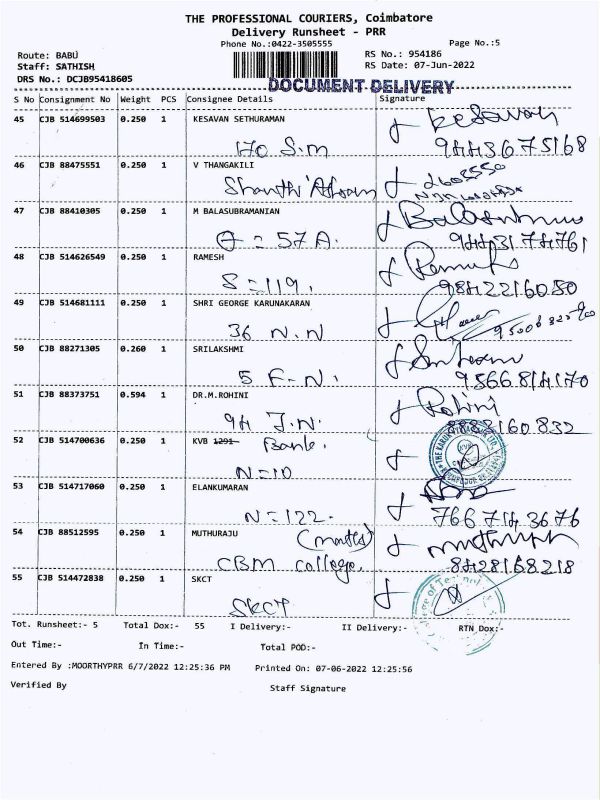 THE PROFESSIONAL COURIERS, Coimbatore
Delivery Runsheet - PRR
Phone No.:0422-3505555
Page No.:5
Route: BABU
RS No.: 954186
Staff: SATHISH
RS Date: 07-Jun-2022
DRS No.: DCJB95418605
DOCUMENT DELIVERY
S No Consignment No Weight PCS Consignee Details Signature
45 CJB 514699503 0.250 1 KESAVAN SETHURAMAN Kesavan
170 S.m 9443675168
46 CJB 88475551 0.250 1 V THANGAKILI
Shanthi 2603550
47 CJB 88410305 0.250 1 M BALASUBRAMANIAN
= 57 A. 9443174761
48 CJB 514626549 0.250 1 RAMESH
S = 119. 9842216050
49 CJB 514681111 0.250 1 SHRI GEORGE KARUNAKARAN
36 N.N
50 CJB 88271305 0.260 1 SRILAKSHMI
5 F-N. 9566814170
51 CJB 88373751 0.594 1 DR.M.ROHINI Rohini
94 J.N. 8883160832
52 CJB 514700636 0.250 1 KVB 1291- Bank.
N=10
53 CJB 514717060 0.250 1 ELANKUMARAN
N=122. 7667143676
54 CJB 88512595 0.250 1 MUTHURAJU (maths) muthuraju
CBM College 8428168218
55 CJB 514472838 0.250 1 SKCT
SKCT
Tot. Runsheet:- 5 Total Dox:- 55 I Delivery:- II Delivery:- RTN Dox:-
Out Time:- In Time:- Total POD:-
Entered By :MOORTHYPRR 6/7/2022 12:25:36 PM Printed On: 07-06-2022 12:25:56
Verified By
Staff Signature